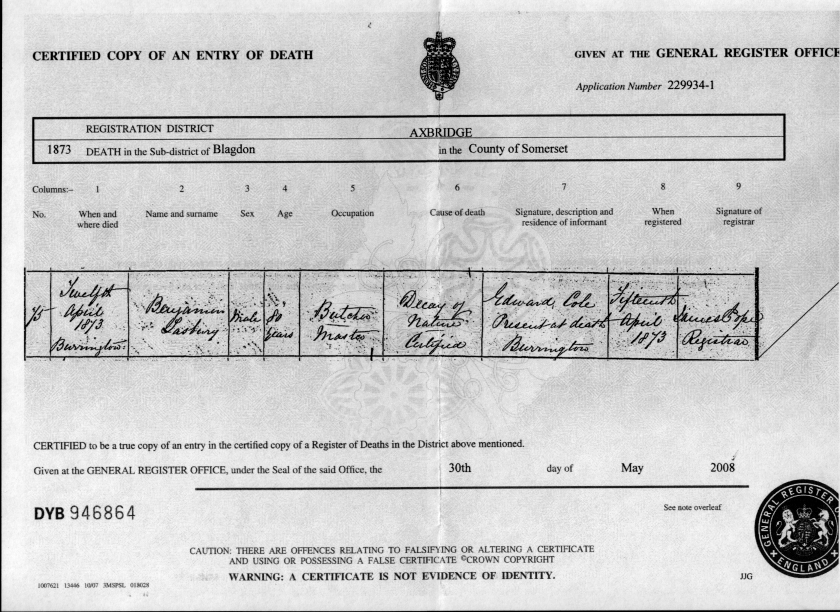 CERTIFIED COPY OF AN ENTRY OF DEATH
GIVEN AT THE GENERAL REGISTER OFFICE
Application Number 229934-1
REGISTRATION DISTRICT AXBRIDGE
1873 DEATH in the Sub-district of Blagdon in the County of Somerset
Columns:– 1 2 3 4 5 6 7 8 9
No. When and where died Name and surname Sex Age Occupation Cause of death Signature, description and residence of informant When registered Signature of registrar
75
Twelfth
April
1873
Burrington
Benjamin
Lasbury
Male
80
years
Butcher
Master
Decay of
Nature
Certified
Edward Cole
Present at death
Burrington
Fifteenth
April
1873
James
Registrar
CERTIFIED to be a true copy of an entry in the certified copy of a Register of Deaths in the District above mentioned.
Given at the GENERAL REGISTER OFFICE, under the Seal of the said Office, the 30th day of May 2008
DYB 946864
See note overleaf
GENERAL REGISTER OFFICE
ENGLAND
CAUTION: THERE ARE OFFENCES RELATING TO FALSIFYING OR ALTERING A CERTIFICATE
AND USING OR POSSESSING A FALSE CERTIFICATE ©CROWN COPYRIGHT
WARNING: A CERTIFICATE IS NOT EVIDENCE OF IDENTITY.
JJG
1007621 13446 10/07 3MSPSL 018028